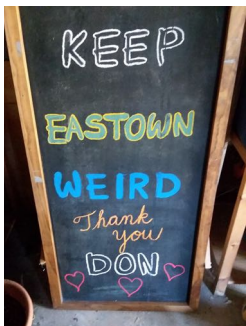 KEEP
EASTOWN
WEIRD
Thank
you
DON